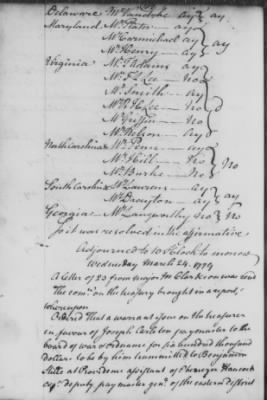 Delaware Mr Vandyke ay } ay
Maryland Mr Plater ay
Mr Carmichael ay } ay
Mr Henry ay
Virginia Mr T Adams ay
Mr F L Lee no
Mr Smith ay
Mr R H Lee no } d
Mr Griffin no
Mr Nelson ay
North Carolina Mr Penn ay
Mr Hill no } no
Mr Burke no
South Carolina Mr Laurens ay } ay
Mr Drayton ay
Georgia Mr Langworthy no } no
So it was resolved in the affirmative
Adjourned to 10 oClock to morrow
Wednesday March 24. 1779
A letter of 23 from major M Clarkson was read
The comee on the treasury brought in a report,
whereupon
Ordered That a warrant issue on the treasurer
in favour of Joseph Carleton paymaster to the
board of war & ordnance for six hundred thousand
dollars to be by him transmitted to Benjamin
Stelle at Providence assistant of Ebenezer Hancock
esqr deputy paymaster genl of the eastern district